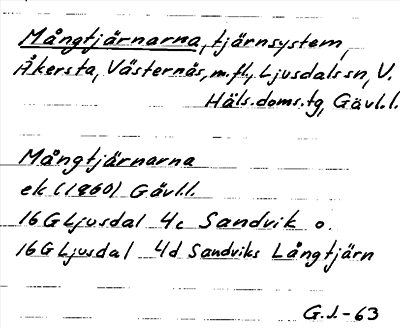 Mångtjärnarna, tjärnsystem,
Åkersta, Västernäs, m.fl., Ljusdals sn, V.
Häls. doms.tg, Gävl.l.
Mångtjärnarna
ek (1960) Gävl.l.
16G Ljusdal 4c Sandvik o.
16G Ljusdal 4d Sandviks Långtjärn
G.J.-63